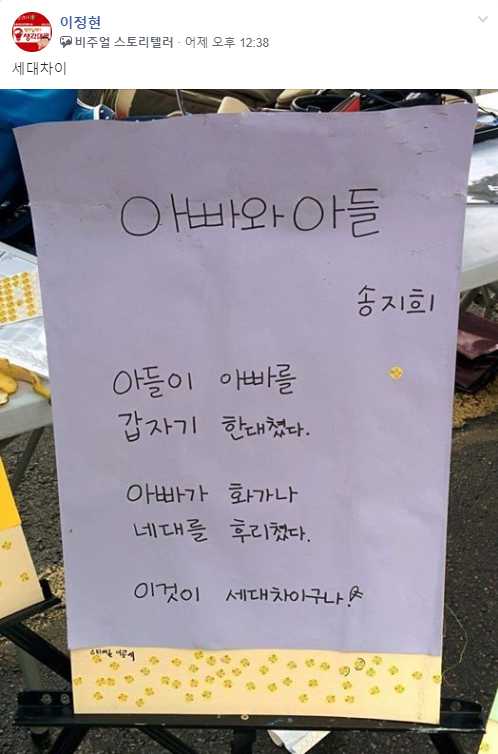 이정현
비주얼 스토리텔러 · 어제 오후 12:38
세대차이
아빠와 아들
송지희
아들이 아빠를
갑자기 한대쳤다.
아빠가 화가나
네대를 후리쳤다.
이것이 세대차이구나!